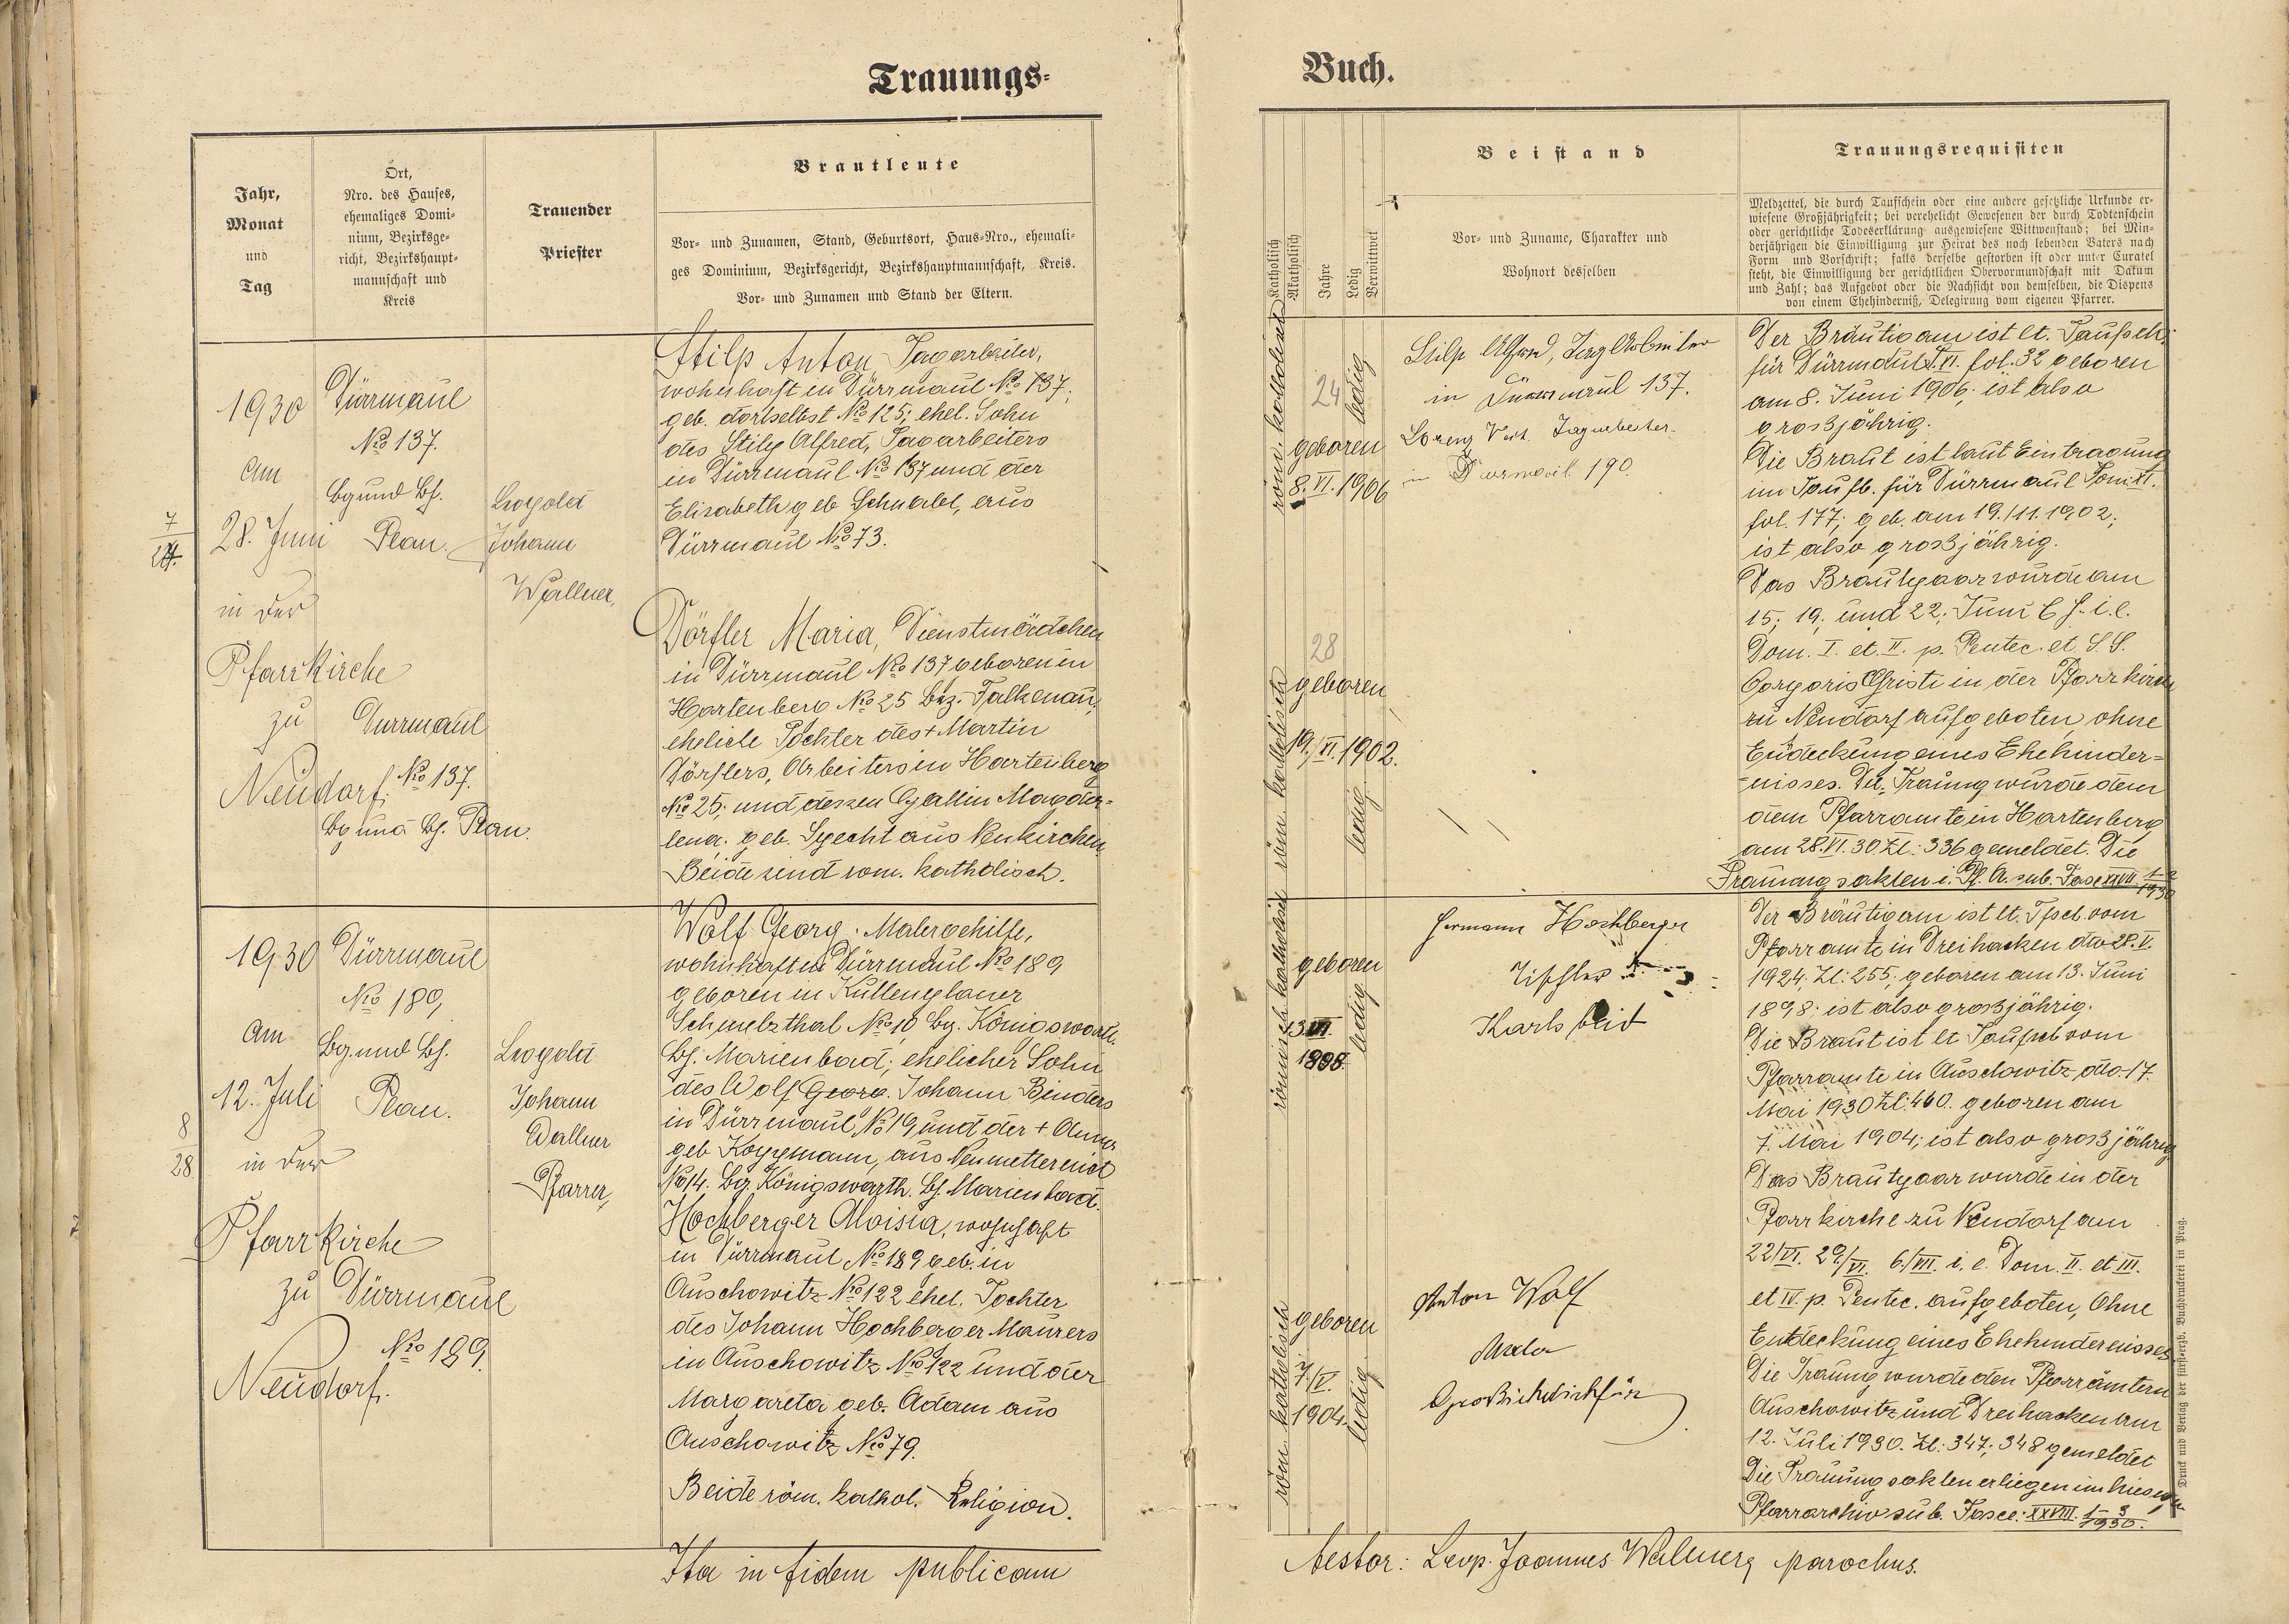 Trauungs-
Buch.
Jahr,
Monat
und
Tag
Ort,
Nro. des Hauses,
ehemaliges Domi-
nium, Bezirksge-
richt, Bezirkshaupt-
mannschaft und
Kreis
Trauender
Priester
Brautleute
Vor- und Zunamen, Stand, Geburtsort, Haus-Nro., ehemali-
ges Dominium, Bezirksgericht, Bezirkshauptmannschaft, Kreis.
Vor- und Zunamen und Stand der Eltern.
Katholisch
Akatholisch
Jahre
Ledig
Verwittwet
Beistand
Vor- und Zuname, Charakter und
Wohnort desselben
Trauungsrequisiten
Meldzettel, die durch Taufschein oder eine andere gesetzliche Urkunde er-
wiesene Großjährigkeit; bei verehelicht Gewesenen der durch Todtenschein
oder gerichtliche Todeserklärung ausgewiesene Wittwenstand; bei Min-
derjährigen die Einwilligung zur Heirat des noch lebenden Vaters nach
Form und Vorschrift; falls derselbe gestorben ist oder unter Curatel
steht, die Einwilligung der gerichtlichen Obervormundschaft mit Datum
und Zahl; das Aufgebot oder die Nachsicht von demselben, die Dispens
von einem Ehehinderniß, Delegirung vom eigenen Pfarrer.
7
1930
am
28. Juni
in der
Pfarrkirche
zu
Neudorf.
Dürrmaul
No 137.
Bg und Bh.
Plan.
Dürrmaul
No 137.
Bg und Bh. Plan.
Leopold
Johann
Wallner,
Stilp Anton Tagarbeiter,
wohnhaft in Dürrmaul No 137;
geb. dortselbst No 125; ehel. Sohn
des Stilp Alfred, Tagarbeiters
in Dürrmaul No 137 und der
Elisabeth geb Schnabl, aus
Dürrmaul No 73.
Dörfler Maria, Dienstmädchen
in Dürrmaul No 137 geboren in
Hartenberg No 25 Bez. Falkenau,
eheliche Tochter des + Martin
Dörflers, Arbeiters in Hartenberg
No 25; und dessen Gattin Magda-
lena. geb. Specht aus Neukirchen.
Beide sind rom. katholisch.
röm. katholisch
24
geboren
8. VI. 1906
ledig
röm. katholisch
28
geboren
19./XI. 1902.
ledig
Stilp Alfred, Tagarbeiter
in Dürrmaul 137.
Lorenz Veit. Tagarbeiter.
in Dürrmaul 190.
Der Bräutigam ist lt. Taufsch.
für Dürrmaul T. VI. fol. 32 geboren
am 8. Juni 1906; ist also
grosjährig.
Die Braut ist laut Eintragung
im Taufb. für Dürrmaul Tom. XI.
fol. 177; geb. am 19./11. 1902;
ist also grosjährig.
Das Brautpaar wurde am
15; 19; und 22; Juni l. J. i. e.
Dom. I. et. II. p. Pentec. et. S.S.
Corporis Christi in der Pfarrkirche
zu Neudorf aufgeboten, ohne
Entdeckung eines Ehehinder-
nisses. Die Trauung wurde dem
dem Pfarramte in Hartenberg
am 28. VI. 30. Zl: 336 gemeldet. Die
Trauungsakten i. Pf. A. sub. Fasc XXVIII. 1-2/1930
8
28
1930
am
12. Juli
in der
Pfarrkirche
zu
Neudorf.
Dürrmaul
No 189,
Bg und Bh.
Plan.
Dürrmaul
No 189.
Leopold
Johann
Wallner
Pfarrer,
Wolf Georg. Malergehilfe,
wohnhaft in Dürrmaul No 189
geboren in Kuttenplaner
Schmelzthal No 10 Bg. Königswart.
Bh. Marienbad; ehelicher Sohn
des Wolf Georg. Johann Binders
in Dürrmaul No 19 und der + Anna
geb Koppmann, aus Neumetternich
No 14. Bg. Königswarth. Bh. Marienbad.
Hochberger Aloisia, wohnhaft
in Dürrmaul No 189 geb. in
Auschowitz No 122 ehel. Tochter
des Johann Hochberger Maurers
in Auschowitz No 122 und der
Margareta geb. Adam aus
Auschowitz No 79.
Beide röm. kathol. Religion.
römisch katholisch
geboren
13
1898.
ledig
röm katholisch
geboren
7./V.
1904.
ledig
Hermann Hochberger
Tischler
Karlsbad
Anton Wolf
Maler
Großsichdichfür
Der Bräutigam ist lt. Tfsch. vom
Pfarramte in Dreihacken dto 28. V.
1924. Zl: 255; geboren am 13. Juni
1898; ist also grosjährig.
Die Braut ist lt Taufsch vom
Pfarramte in Auschowitz, dto. 17.
Mai 1930 Zl: 460. geboren am
7. Mai 1904; ist also grosjährig
Das Brautpaar wurde in der
Pfarrkirche zu Neudorf am
22/VI. 29/VI. 6./VII. i. e. Dom. II. et III.
et IV. p. Pentec. aufgeboten, Ohne
Entdeckung eines Ehehindernisses
Die Trauung wurde den Pfarrämtern
Auschowitz und Dreihacken am
12. Juli 1930. Zl: 347; 348 gemeldet
Die Trauungsakten erliegen im hiesigen
Pfarrarchiv sub. Fasc: XXVIII. 1-3/1930.
Druck und Verlag der fürst-erzb. Buchdruckerei in Prag.
Ita in fidem publicam
testor: Leop. Joannes Wallner, parochus.